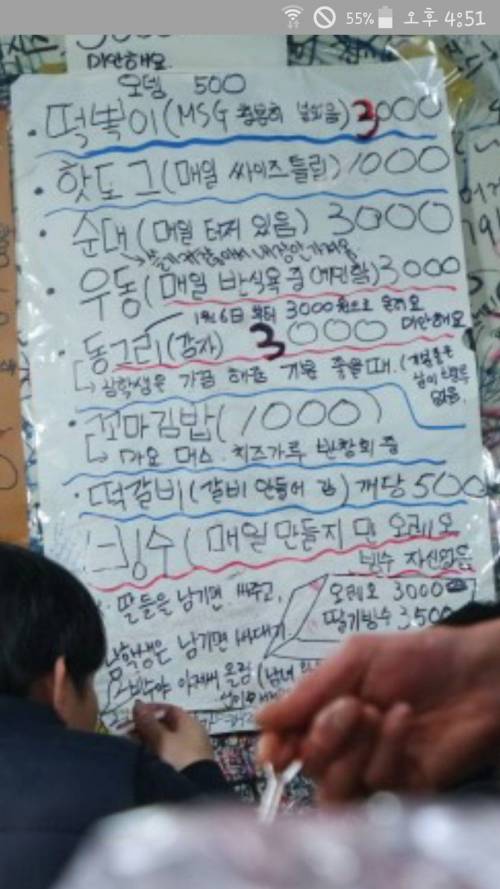 55% 오후 4:51
미안해요
오뎅 500
떡볶이(MSG 충분히 넣었음)3000
핫도그(매일 싸이즈 틀림)1000
순대(매일 터져 있음) 3000
우동(매일 반식욕 중
3000
1월6일 부터 3000원으로 올려요
미안해요
동그리(감자) 3000
가끔 해줌 기분 좋을때.
꼬마김밥(1000)
마요 머스 치즈가루 반창회 중
떡갈비(갈비 만들어 감)개당 500
빙수(매일 만들지만 오레오
빙수 자신없음
딸들을 남기면 싸주고,
남학생은 남기면 싸대기
오레오 3000
딸기빙수 3,500
빙수야 아저씨 올림(남녀